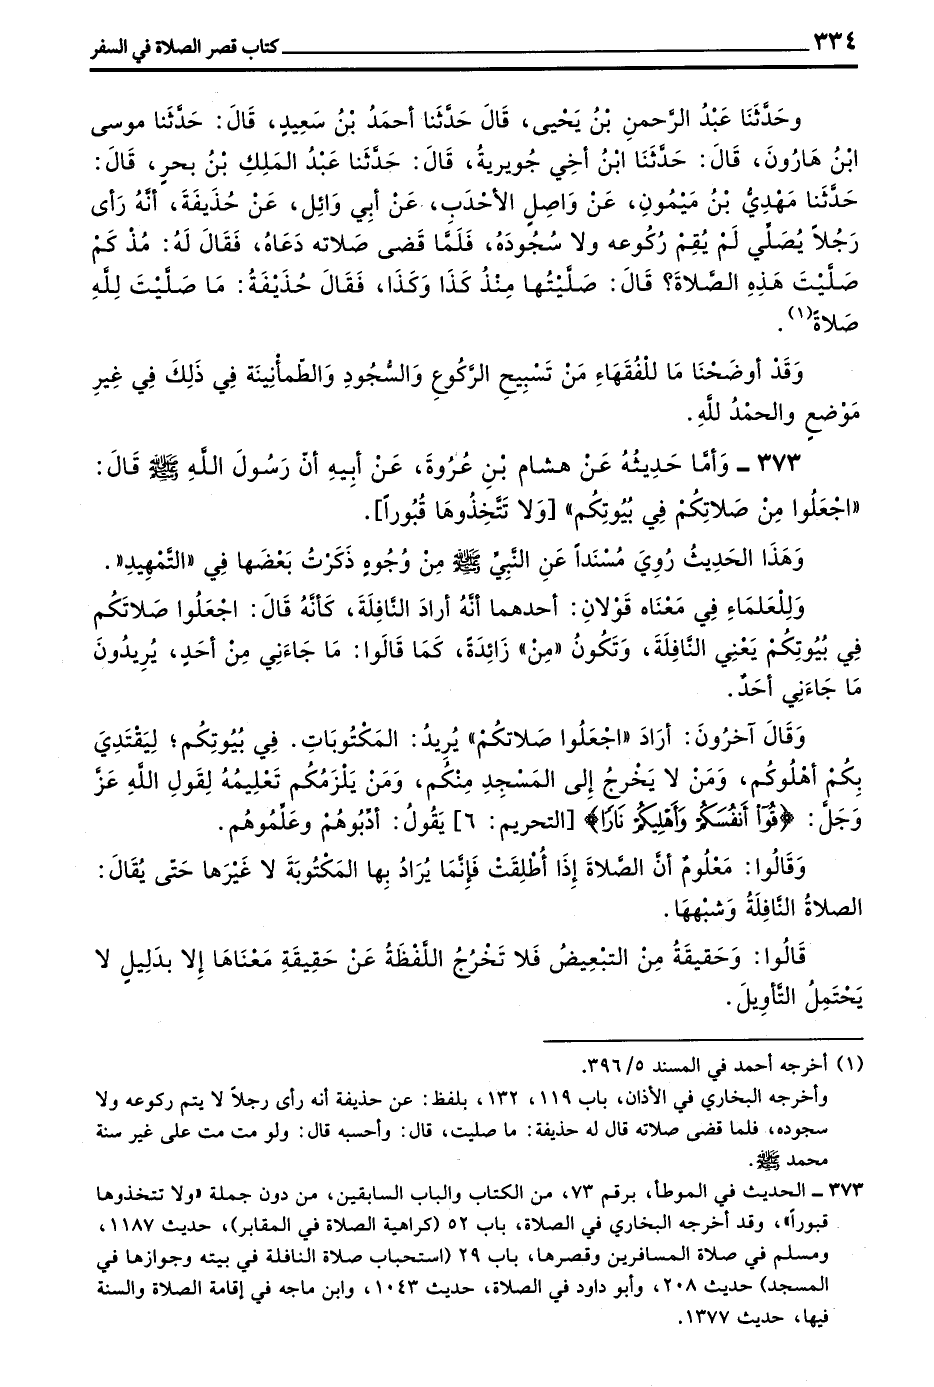 ٣٣٤ كتاب قصر الصلاة في السفر
وحَدَّثَنَا عَبْدُ الرَّحمنِ بْنُ يَحْيى، قَالَ حَدَّثَنا أحمَدُ بْنُ سَعِيدٍ، قَالَ: حَدَّثَنا موسى
ابْنُ هَارُونَ، قَالَ: حَدَّثَنَا ابْنُ أخِي جُويرِيةُ، قَالَ: حَدَّثَنا عَبْدُ المَلِكِ بْنُ بحرٍ، قَالَ:
حَدَّثَنا مَهْدِيُّ بْنُ مَيْمُونِ، عَنْ وَاصِلٍ الأحْدَبِ، عَنْ أبي وَائِل، عَنْ حُذَيفَةَ، أنَّهُ رَأى
رَجُلاً يُصَلِّي لَمْ يُقِمْ رُكُوعه ولا سُجُودَهُ، فَلَمَّا قَضى صَلاته دَعَاهُ، فَقَالَ لَهُ: مُذْ كَمْ
صَلَّيْتَ هَذِهِ الصَّلاةَ؟ قَالَ: صَلَّيْتُها مِنْذُ كَذَا وَكَذَا، فَقَالَ حُذَيْفَةُ: مَا صَلَّيْتَ لِلَّهِ
صَلاةً(١).
وَقَدْ أوضَحْنَا مَا للْفُقَهَاءِ مَنْ تَسْبِيحِ الرَّكُوعِ وَالسُّجُودِ وَالطّمأْنِينَة فِي ذَلِكَ فِي غِيرِ
مَوْضعٍ والحمْدُ للَّهِ.
٣٧٣ ـ وَأمَّا حَدِيثُهُ عَنْ هشام بْنِ عُرُوةَ، عَنْ أبيهِ أنّ رَسُولَ اللَّهِ ﷺ قَالَ:
«اجْعَلُوا مِنْ صَلاتِكُمْ فِي بيُوتِكُم» [وَلا تَتَّخِذُوهَا قُبُوراً].
وَهَذَا الحَدِيثُ رُوِيَ مُسْنَداً عَنِ النَّبِيِّ ﷺ مِنْ وُجُوهٍ ذَكَرْتُ بَعْضَها فِي «التَّمْهِيدِ».
وَلِلْعَلمَاءِ فِي مَعْنَاه قَوْلانِ: أحدهما أنَّهُ أرادَ النَّافِلَةَ، كَأنَّهُ قَالَ: اجْعَلُوا صَلاتَكُم
فِي بُيُوتِكُمْ يَعْنِي النَّافِلَةَ، وَتَكُونُ «مِنْ» زَائِدَةً، كَمَا قَالُوا: مَا جَاءَنِي مِنْ أحَدٍ، يُرِيدُونَ
مَا جَاءَنِي أحَدٌ.
وَقَالَ آخرُونَ: أرَادَ «اجْعَلُوا صَلاتكُمْ» يُرِيدُ: المَكْتُوبَاتِ. فِي بُيُوتِكُم؛ لِيَقْتَدِيَ
بِكُمْ أهْلُوكُم، وَمَنْ لا يَخْرجُ إلى المَسْجِدِ مِنْكُم، وَمَنْ يَلْزَمُكُم تَعْلِيمُهُ لِقَولِ اللَّهِ عَزَّ
وَجَلَّ: ﴿قُوٓاْ أَنفُسَكُمْ وَأَهْلِيكُمْ نَارًا﴾ [التحريم: ٦] يَقُولُ: أدِّبُوهُمْ وعَلِّمُوهُم.
وَقَالُوا: مَعْلُومٌ أنَّ الصَّلاةَ إذَا أُطْلِقَتْ فَإنَّمَا يُرَادُ بِها المَكْتُوبَةَ لا غَيْرَها حَتَّى يُقَالَ:
الصلاةُ النَّافِلَةُ وَشبْههَا.
قَالُوا: وَحَقيقَةُ مِنْ التبْعِيضُ فَلا تَخْرُجُ اللَّفْظَةُ عَنْ حَقِيقَةِ مَعْنَاهَا إلا بدَلِيلٍ لا
يَحْتَمِلُ التَّأوِيلَ.
(١) أخرجه أحمد في المسند ٣٩٦/٥.
وأخرجه البخاري في الأذان، باب ١١٩، ١٣٢، بلفظ: عن حذيفة أنه رأى رجلاً لا يتم ركوعه ولا
سجوده، فلما قضى صلاته قال له حذيفة: ما صليت، قال: وأحسبه قال: ولو مت مت على غير سنة
محمد ﷺ.
٣٧٣ ـ الحديث في الموطأ، برقم ٧٣، من الكتاب والباب السابقين، من دون جملة «ولا تتخذوها
قبوراً»، وقد أخرجه البخاري في الصلاة، باب ٥٢ (كراهية الصلاة في المقابر)، حديث ١١٨٧،
ومسلم في صلاة المسافرين وقصرها، باب ٢٩ (استحباب صلاة النافلة في بيته وجوازها في
المسجد) حديث ٢٠٨، وأبو داود في الصلاة، حديث ١٠٤٣، وابن ماجه في إقامة الصلاة والسنة
فيها، حديث ١٣٧٧.